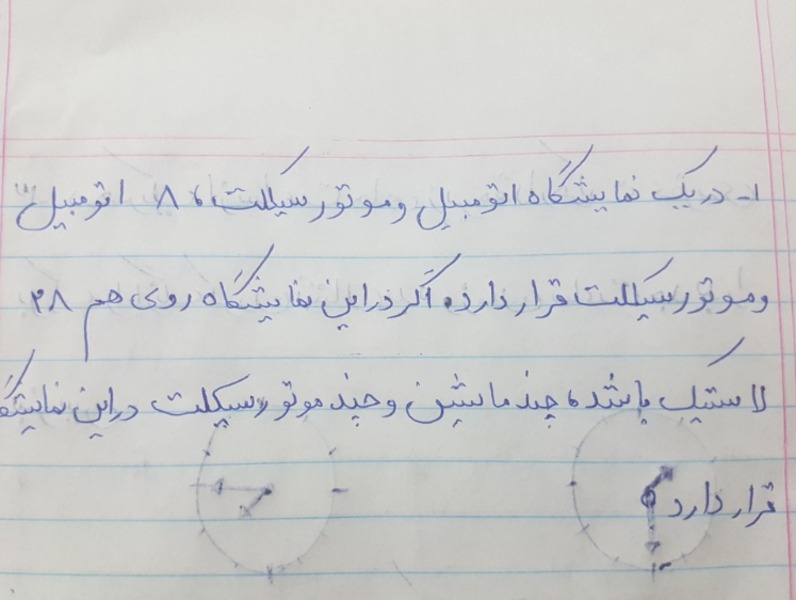 ۱- در یک نمایشگاه اتومبیل و موتورسیکلت، ۸ اتومبیل
و موتورسیکلت قرار دارد. اگر در این نمایشگاه روی هم ۲۸
لاستیک باشد، چند ماشین و چند موتورسیکلت در این نمایشگا
قرار دارد